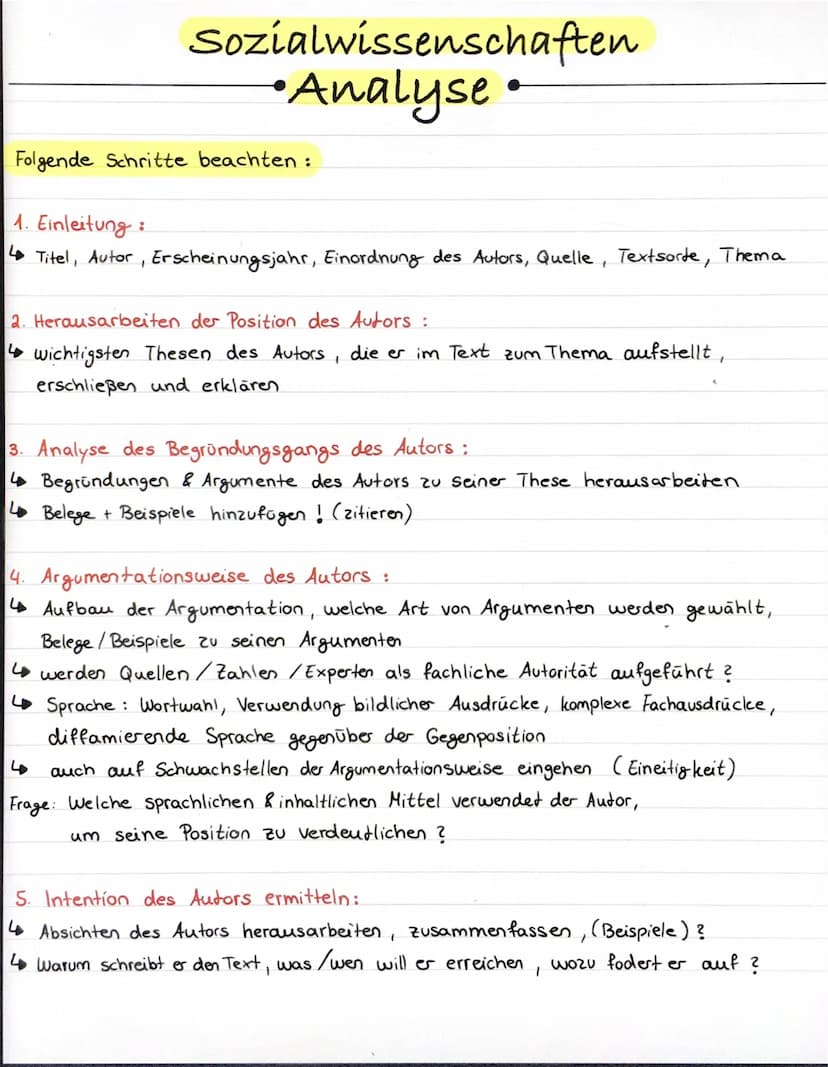 Sozialwissenschaften
Analyse
Folgende Schritte beachten :
1. Einleitung :
↳ Titel, Autor, Erscheinungsjahr, Einordnung des Autors, Quelle, Textsorte, Thema
2. Herausarbeiten der Position des Autors :
↳ wichtigsten Thesen des Autors, die er im Text zum Thema aufstellt,
erschließen und erklären
3. Analyse des Begründungsgangs des Autors :
↳ Begründungen & Argumente des Autors zu seiner These herausarbeiten
↳ Belege + Beispiele hinzufügen ! (zitieren)
4. Argumentationsweise des Autors :
↳ Aufbau der Argumentation, welche Art von Argumenten werden gewählt,
Belege / Beispiele zu seinen Argumenten
↳ werden Quellen / Zahlen / Experten als fachliche Autorität aufgeführt ?
↳ Sprache : Wortwahl, Verwendung bildlicher Ausdrücke, komplexe Fachausdrücke,
diffamierende Sprache gegenüber der Gegenposition
↳ auch auf Schwachstellen der Argumentationsweise eingehen (Eineitigkeit)
Frage: Welche sprachlichen & inhaltlichen Mittel verwendet der Autor,
um seine Position zu verdeutlichen ?
5. Intention des Autors ermitteln:
↳ Absichten des Autors herausarbeiten, zusammenfassen, (Beispiele) ?
↳ Warum schreibt er den Text, was / wen will er erreichen, wozu fodert er auf ?